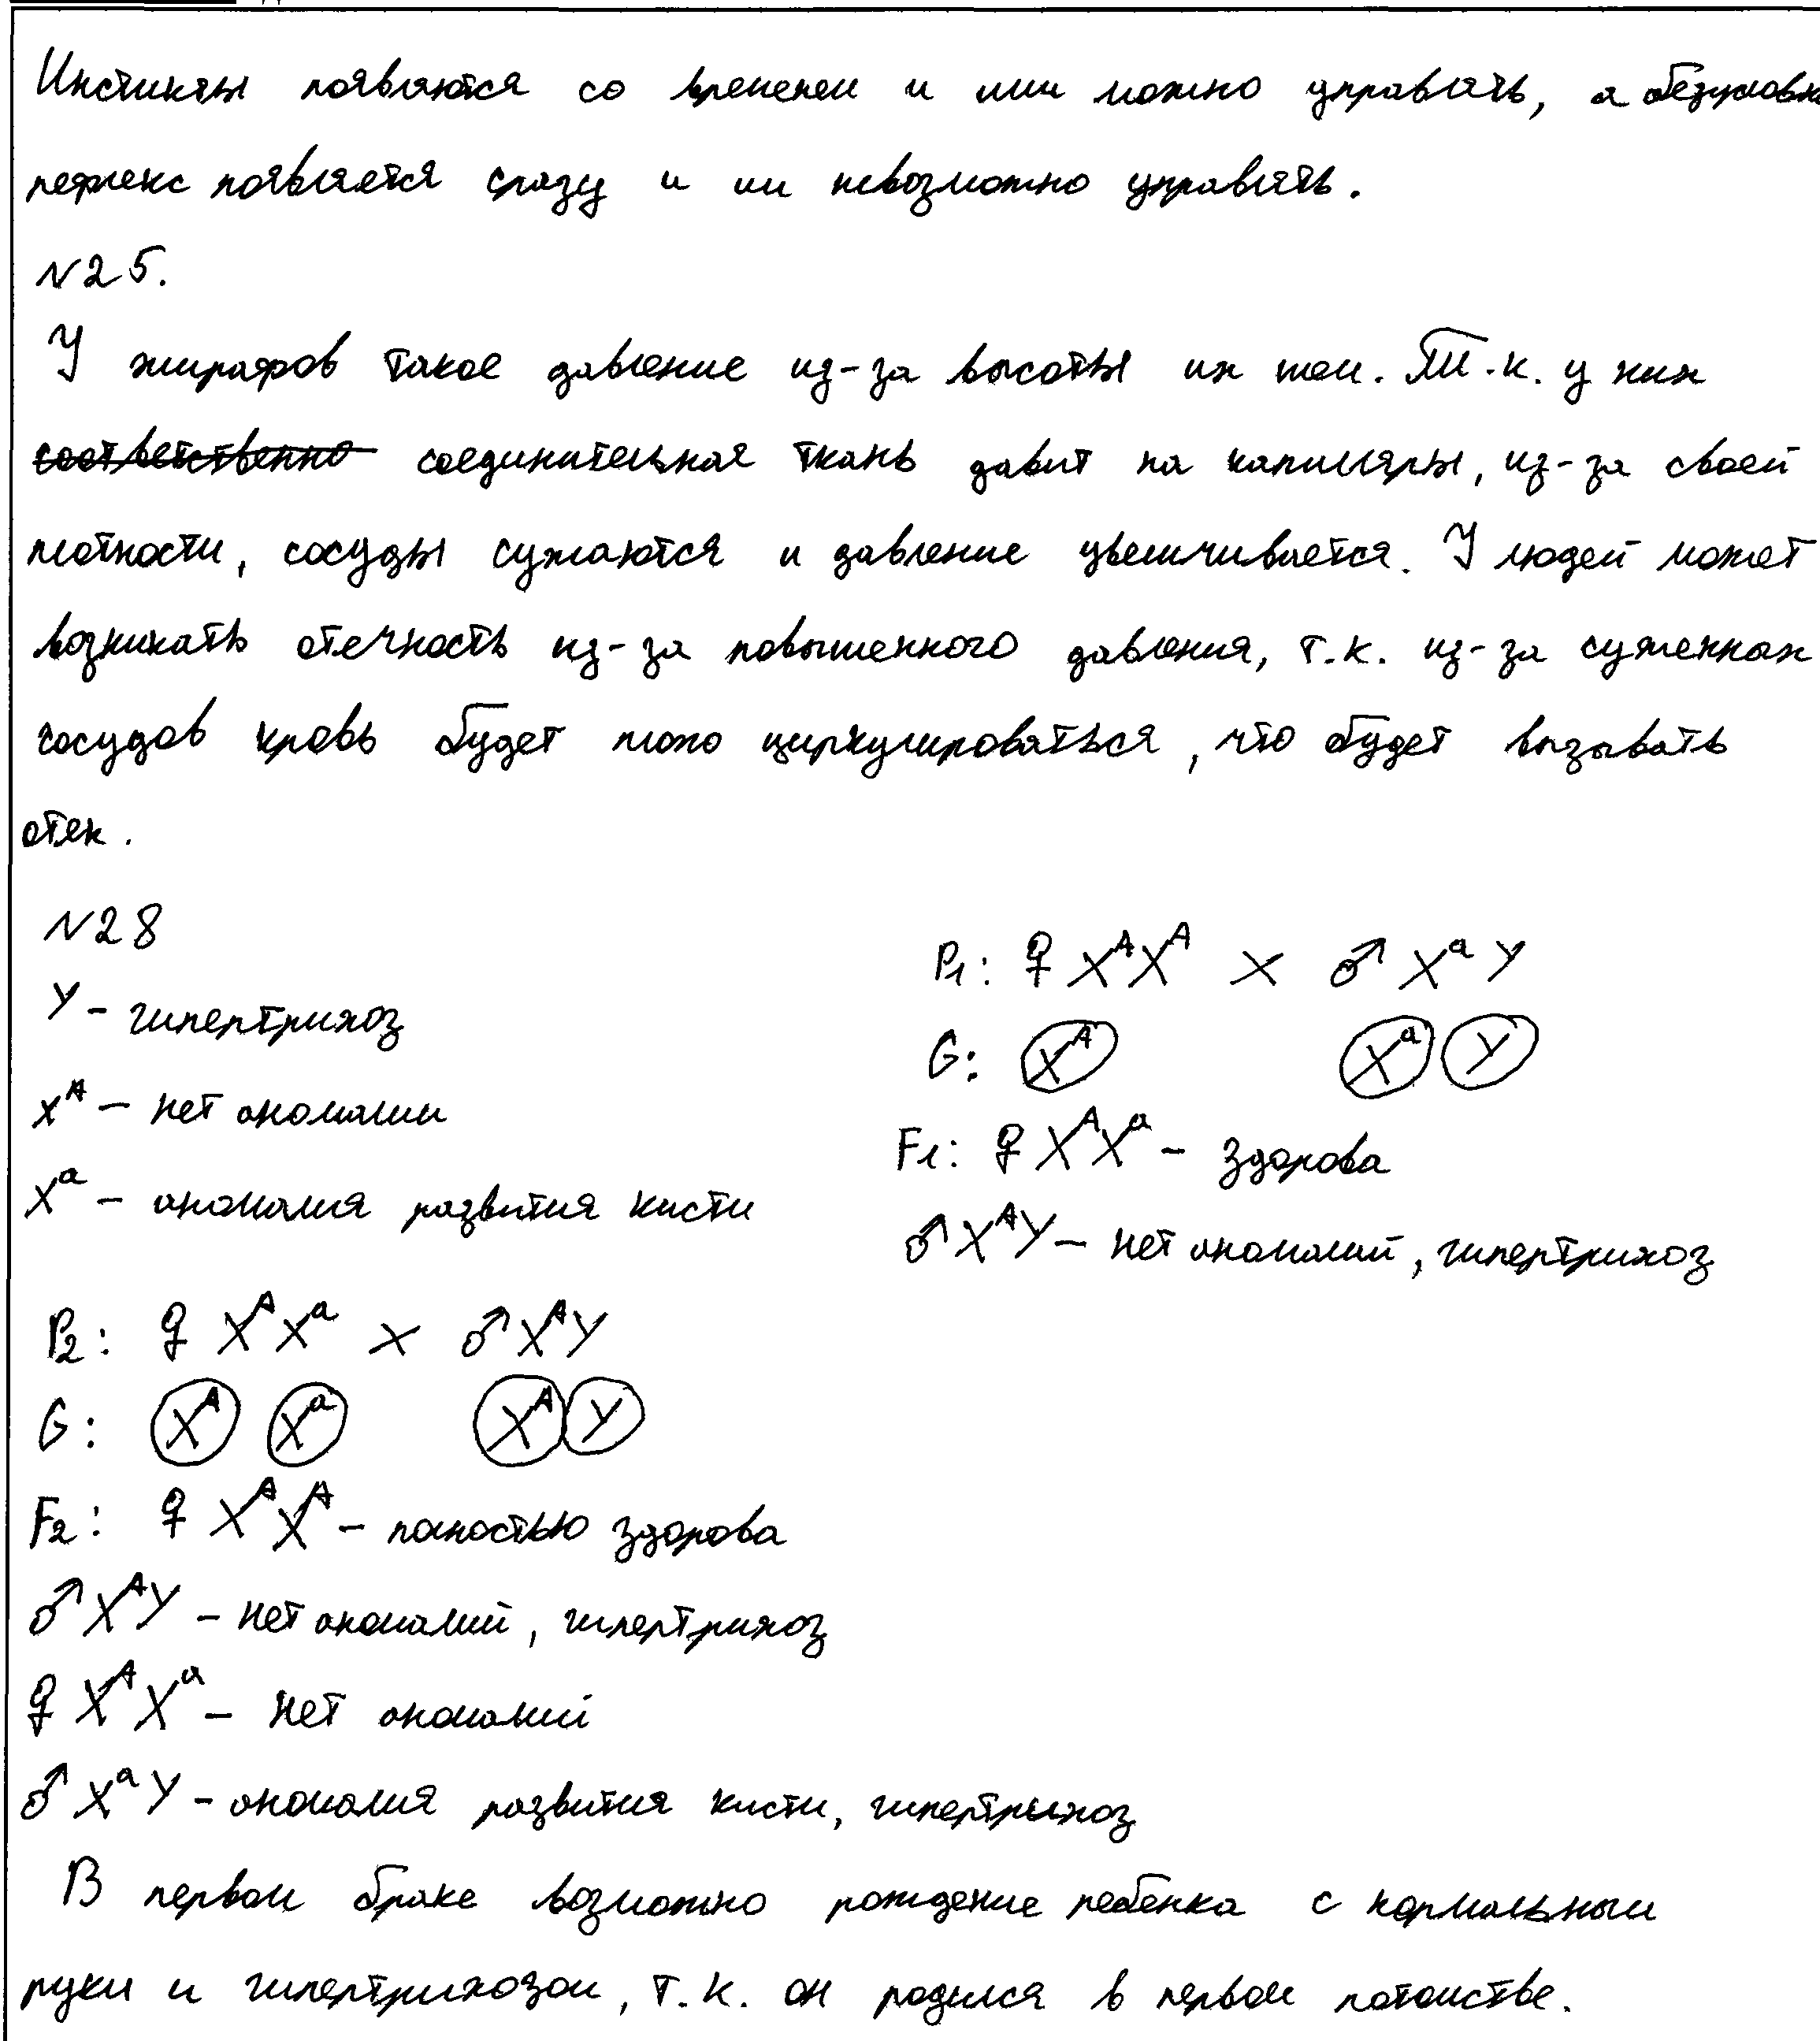 Инстинкты появляются со временем и ими можно управлять, а безусловн
рефлекс появляется сразу и им невозможно управлять.
№25.
У жирафов такое давление из-за высоты их шеи. Т.к. у них
соответственно соединительная ткань давит на капилляры, из-за своей
плотности, сосуды сужаются и давление увеличивается. У людей может
возникать отечность из-за повышенного давления, т.к. из-за суженных
сосудов кровь будет плохо циркулироваться, что будет вызывать
отек.
№28
Y – гипертрихоз
X^A – нет аномалии
X^a – аномалия развития кисти
P1: ♀ X^A X^A × ♂ X^a Y
G: X^A X^a Y
F1: ♀ X^A X^a – здорова
♂ X^A Y – нет аномалий, гипертрихоз
P2: ♀ X^A X^a × ♂ X^A Y
G: X^A X^a X^A Y
F2: ♀ X^A X^A – полностью здорова
♂ X^A Y – нет аномалий, гипертрихоз
♀ X^A X^a – нет аномалий
♂ X^a Y – аномалия развития кисти, гипертрихоз
В первом браке возможно рождение ребенка с нормальным
руки и гипертрихозом, т.к. он родился в первом потомстве.